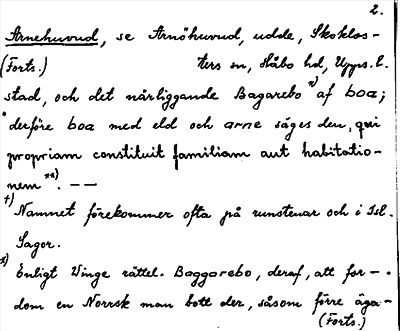 2.
Arnehuvud, se Arnöhuvud, udde, Skoklos-
(Forts.) ters sn, Håbo hd, Upps. l.
stad, och det närliggande Bagarebo *) af boa;
"derföre boa med eld och arne säges den, qui
propriam constituit familiam aut habitatio-
nem **). — —
†) Namnet förekommer ofta på runstenar och i Isl.
Sagor.
*) Enligt Winge rättel. Baggarebo, deraf, att for-
dom en Norrsk man bott der, såsom förre äga-
(Forts.)